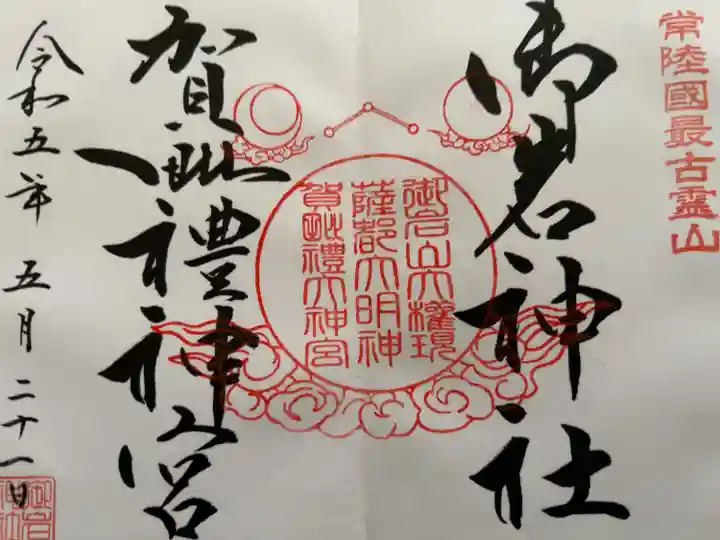 常陸國最古霊山
御岩神社
御岩山大權現
薩都大明神
賀毗禮大神宮
賀毗禮神宮
令和五年 五月二十一日
御岩
神社